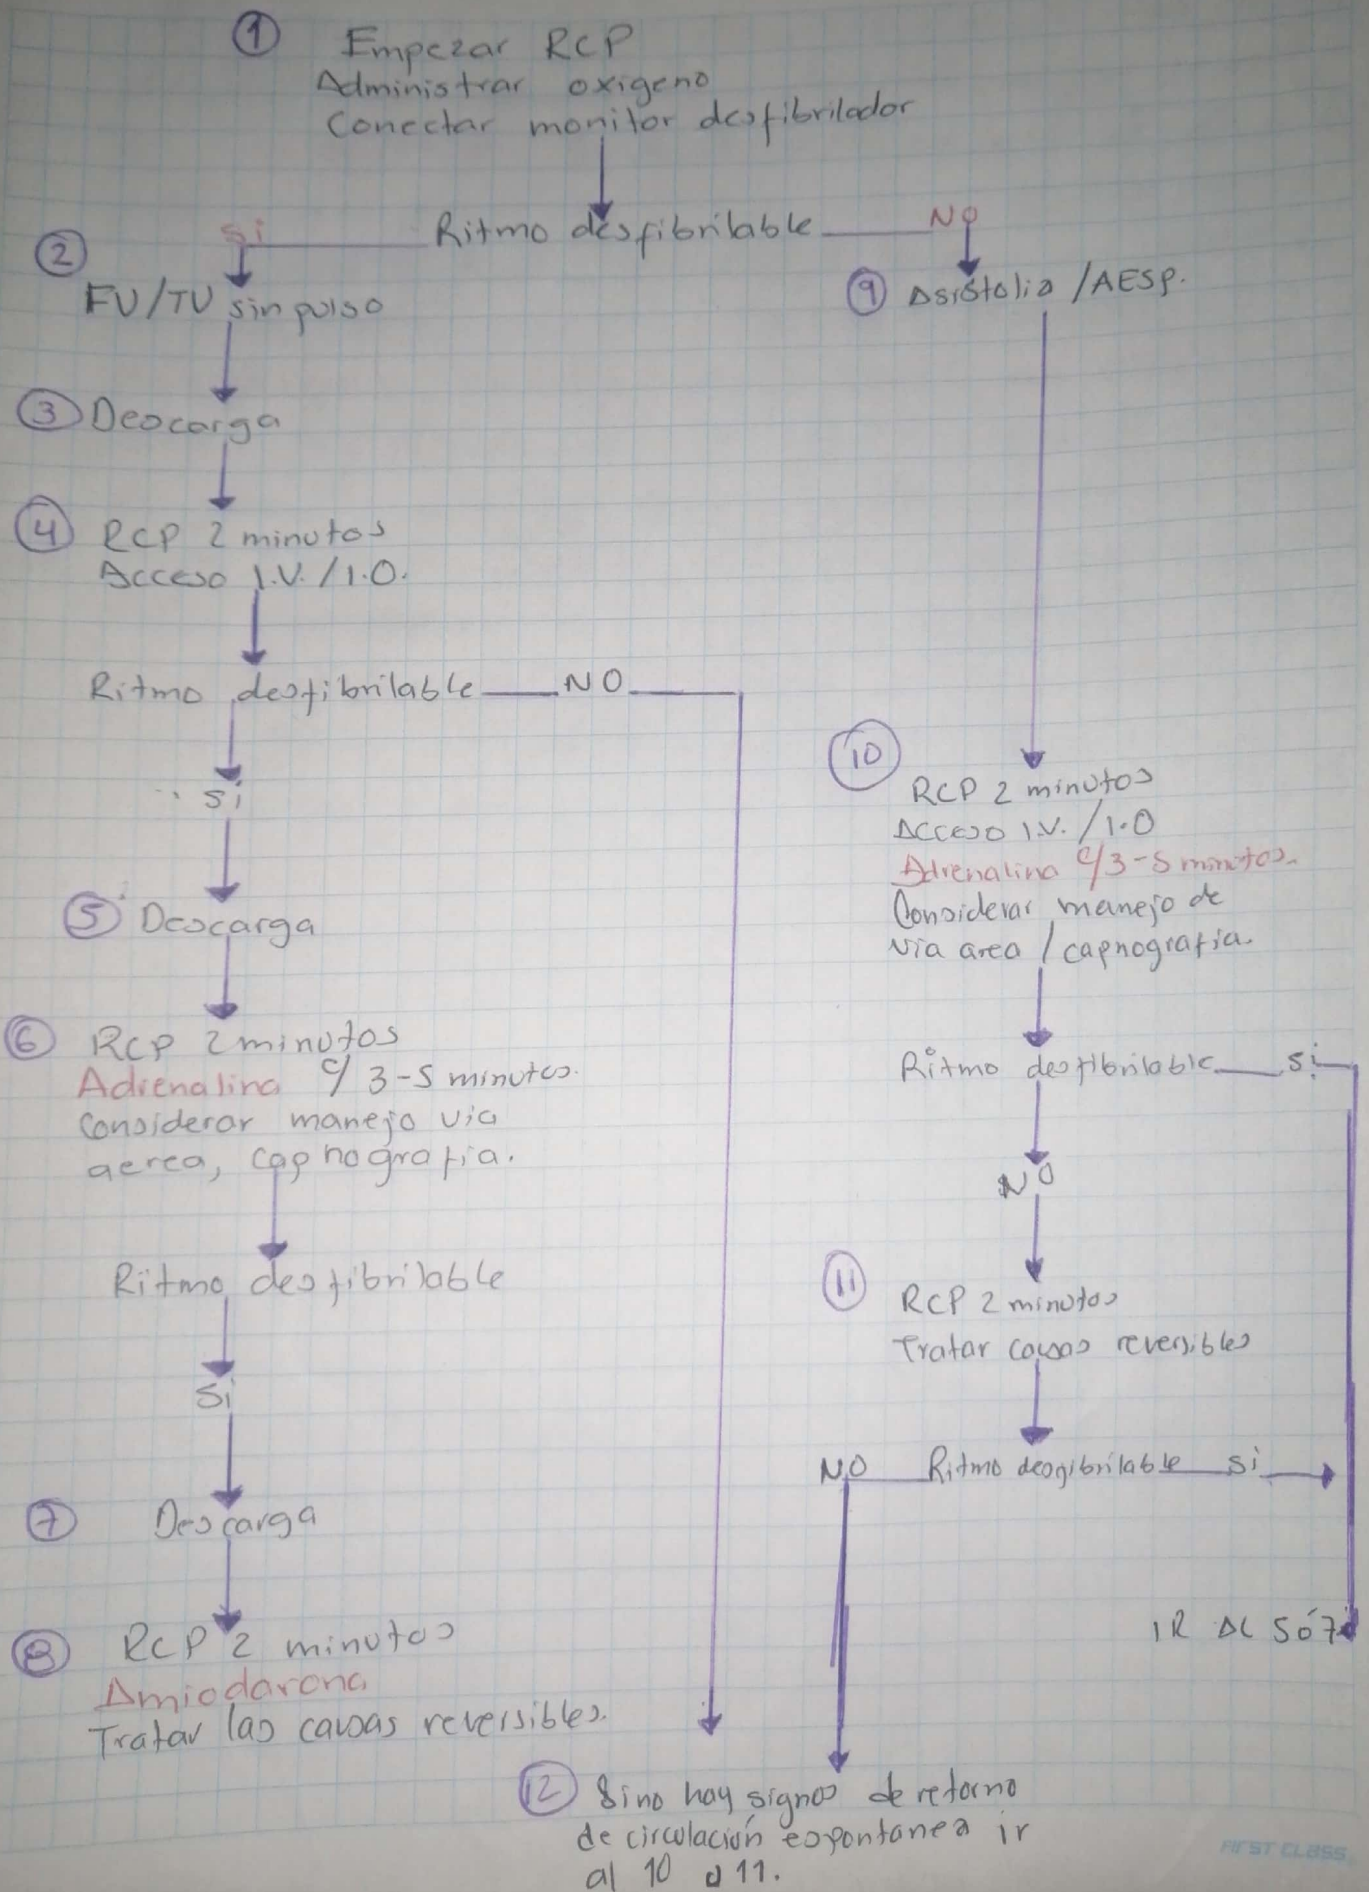 1 Empezar RCP
Administrar oxigeno
Conectar monitor desfibrilador
Si Ritmo desfibrilable No
2 FV/TV sin pulso
3 Descarga
4 RCP 2 minutos
Acceso I.V. / I.O.
Ritmo desfibrilable NO
si
5 Descarga
6 RCP 2 minutos
Adrenalina c/ 3-5 minutos.
Considerar manejo via
aerea, capnografia.
Ritmo desfibrilable
Si
7 Descarga
8 RCP 2 minutos
Amiodarona
Tratar las causas reversibles.
9 Asistolia / AESP.
10 RCP 2 minutos
Acceso I.V. / I.O
Adrenalina c/3-5 minutos.
Considerar manejo de
via area / capnografia.
Ritmo desfibrilable si
NO
11 RCP 2 minutos
Tratar causas reversibles
NO Ritmo desfibrilable si
IR AL 5 ó 7
12 Sino hay signos de retorno
de circulación espontanea ir
al 10 o 11.
FIRST CLASS